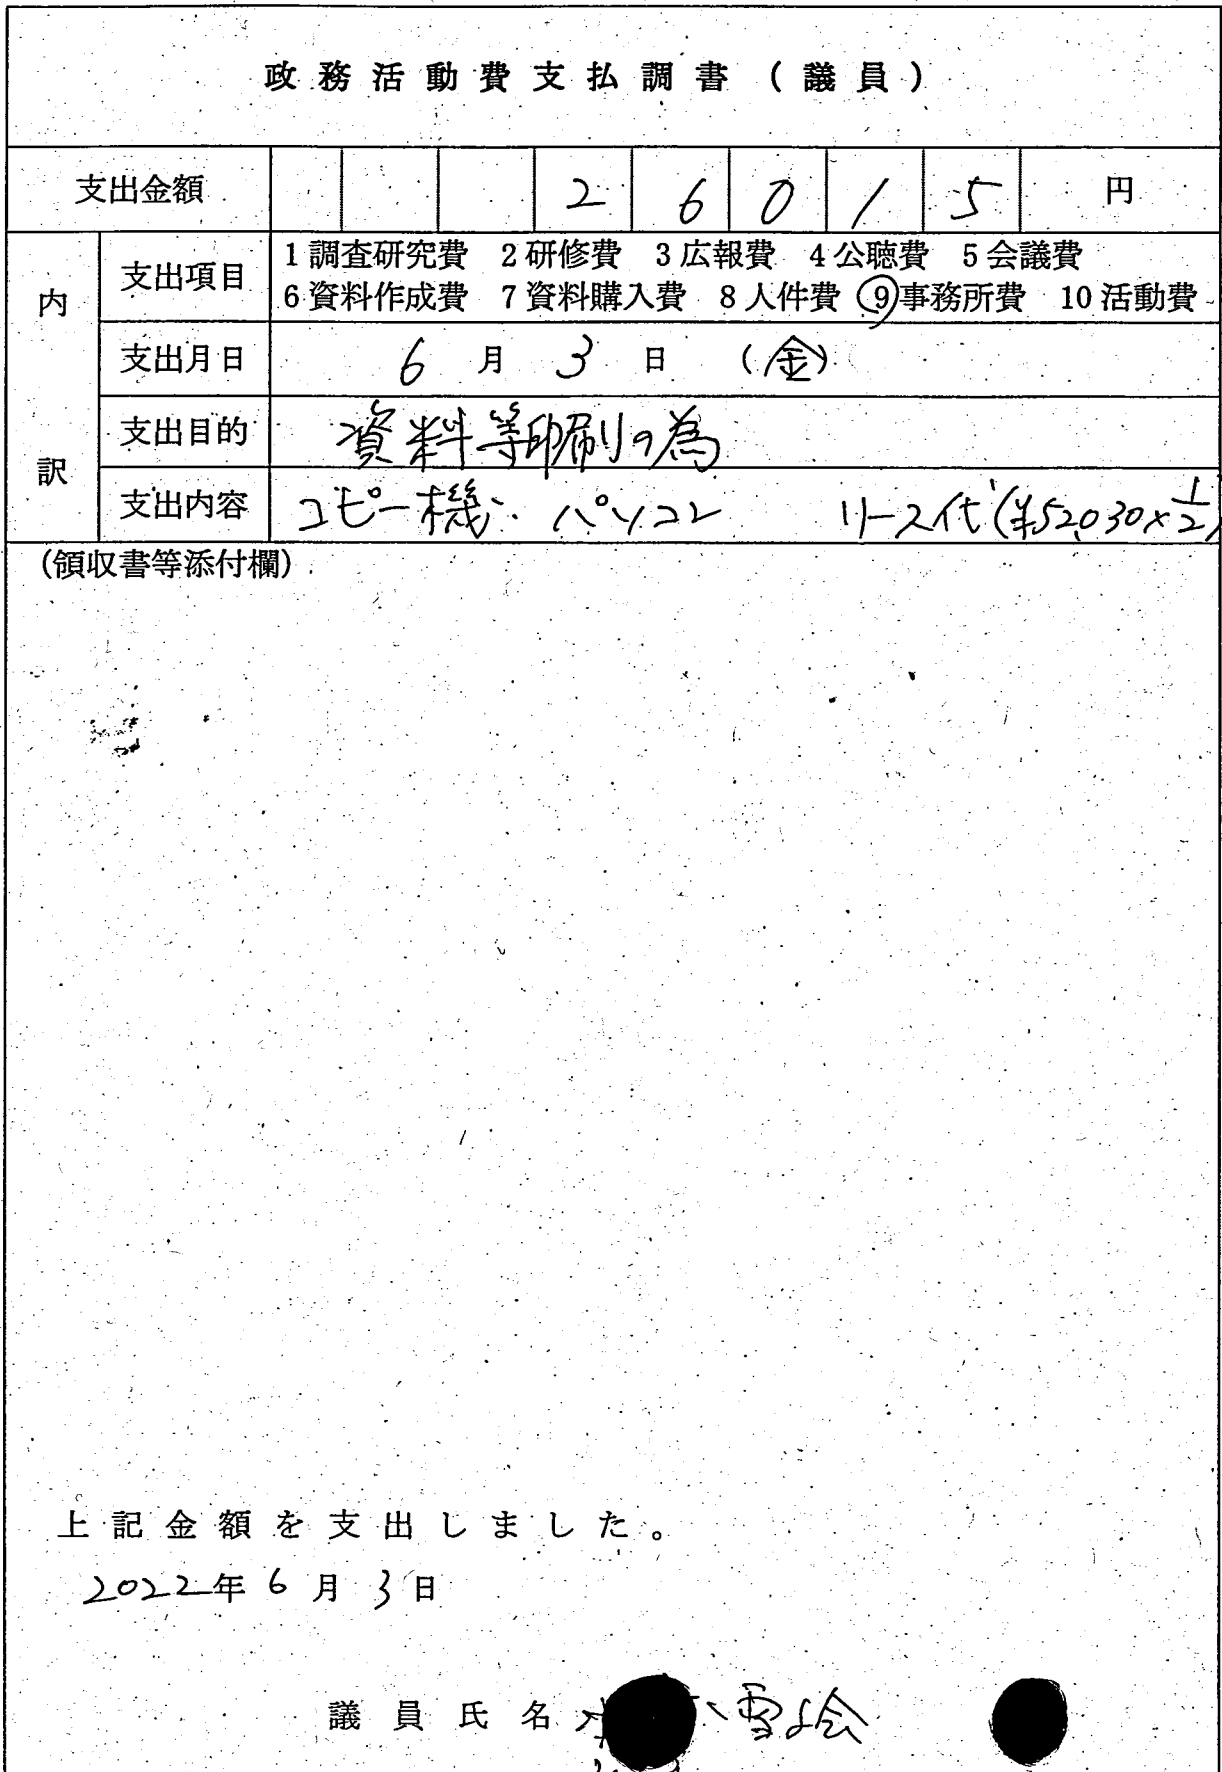 政務活動費支払調書(議員)
支出金額 26015 円
内訳
支出項目 1調査研究費 2研修費 3広報費 4公聴費 5会議費
6資料作成費 7資料購入費 8人件費 ⑨事務所費 10活動費
支出月日 6月3日(金)
支出目的 資料等印刷の為
支出内容 コピー機・パソコン リース代(¥52,030×1/2)
(領収書等添付欄)
上記金額を支出しました。
2022年6月3日
議員氏名